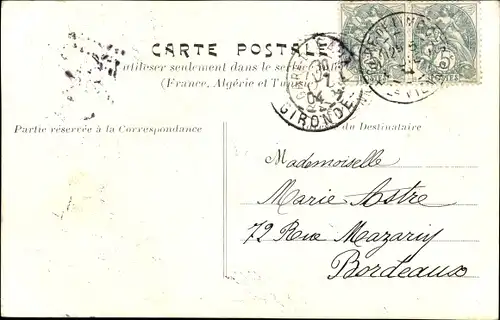 CARTE POSTALE
utiliser seulement dans le service
(France, Algérie et Tunis
GIRONDE
5
Partie réservée à la Correspondance
du Destinataire
Mademoiselle
Marie Astre
72 Rue Mazarin
Bordeaux